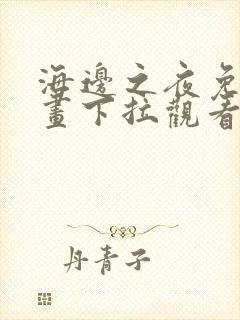 海邊之夜免
畫下拉觀看
丹青子